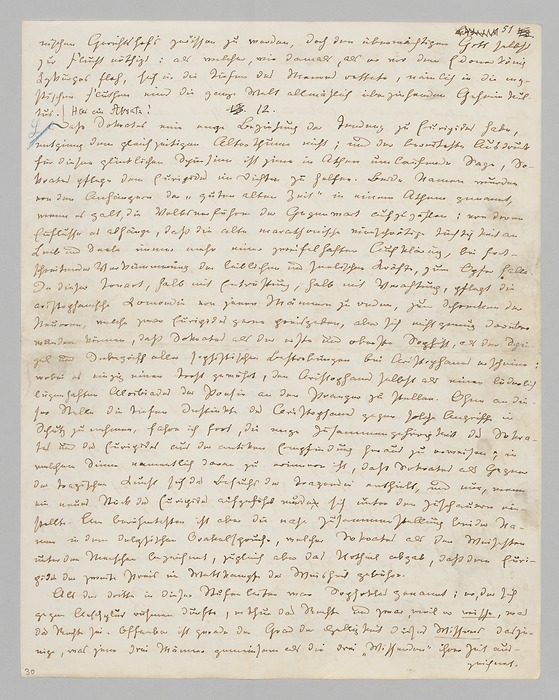 nischen Gerichtshofs zerrissen zu werden, doch den übermächtigen Gott selbst 51
zur Flucht nöthigt: als welcher, wie damals, als er vor dem Edonerkönig
Lykurgos floh, sich in die Tiefen des Meeres rettete, nämlich in die my-
stischen Fluthen eines die ganze Welt allmählich überziehenden Geheimcul-
tus. | Hier ein Absatz! 12.
Daß Sokrates eine enge Beziehung der Tendenz zu Euripides habe,
entging dem gleichzeitigen Alterthume nicht; und der beredteste Ausdruck
für diesen glücklichen Spürsinn ist jene in Athen umlaufende Sage, So-
krates pflege dem Euripides im Dichten zu helfen. Beide Namen wurden
von den Anhängern der „guten alten Zeit" in einem Athem genannt,
wenn es galt, die Volksverführer der Gegenwart aufzuzählen: von deren
Einflusse es abhänge, daß die alte marathonische vierschrötige Tüchtigkeit an
Leib und Seele immer mehr einer zweifelhaften Aufklärung, bei fort-
schreitender Verkümmerung der leiblichen und seelischen Kräfte, zum Opfer falle.
In dieser Tonart, halb mit Entrüstung, halb mit Verachtung, pflegt die
aristophanische Komoedie von jenen Männern zu reden, zum Schrecken der
Neueren, welche zwar Euripides gerne preisgeben, aber sich nicht genug darüber
wundern können, daß Sokrates als der erste und oberste Sophist, als der Spie-
gel und Inbegriff aller sophistischen Bestrebungen bei Aristophanes erscheine:
wobei es einzig einen Trost gewährt, den Aristophanes selbst als einen liederlich
lügenhaften Alcibiades der Poesie an den Pranger zu stellen. Ohne an die-
ser Stelle die tiefen Instinkte des Aristophanes gegen solche Angriffe in
Schutz zu nehmen, fahre ich fort, die enge Zusammengehörigkeit des Sokra-
tes und des Euripides aus der antiken Empfindung heraus zu erweisen; in
welchem Sinne namentlich daran zu erinnern ist, daß Sokrates als Gegner
der tragischen Kunst sich des Besuchs der Tragoedie enthielt, und nur, wenn
ein neues Stück des Euripides aufgeführt wurde, sich unter den Zuschauern ein-
stellte. Am berühmtesten ist aber die nahe Zusammenstellung beider Na-
men in dem delphischen Orakelspruche, welcher Sokrates als den Weisesten
unter den Menschen bezeichnet, zugleich aber das Urtheil abgab, daß dem Euri-
pides der zweite Preis im Wettkampfe der Weisheit gebühre.
Als der dritte in dieser Stufenleiter war Sophokles genannt; er, der sich
gegen Aeschylus rühmen durfte, er thue das Rechte und zwar, weil er wisse, was
das Rechte sei. Offenbar ist gerade der Grad der Helligkeit dieses Wissens dasje-
nige, was jene drei Männer gemeinsam als die drei „Wissenden" ihrer Zeit aus-
zeichnet.
30